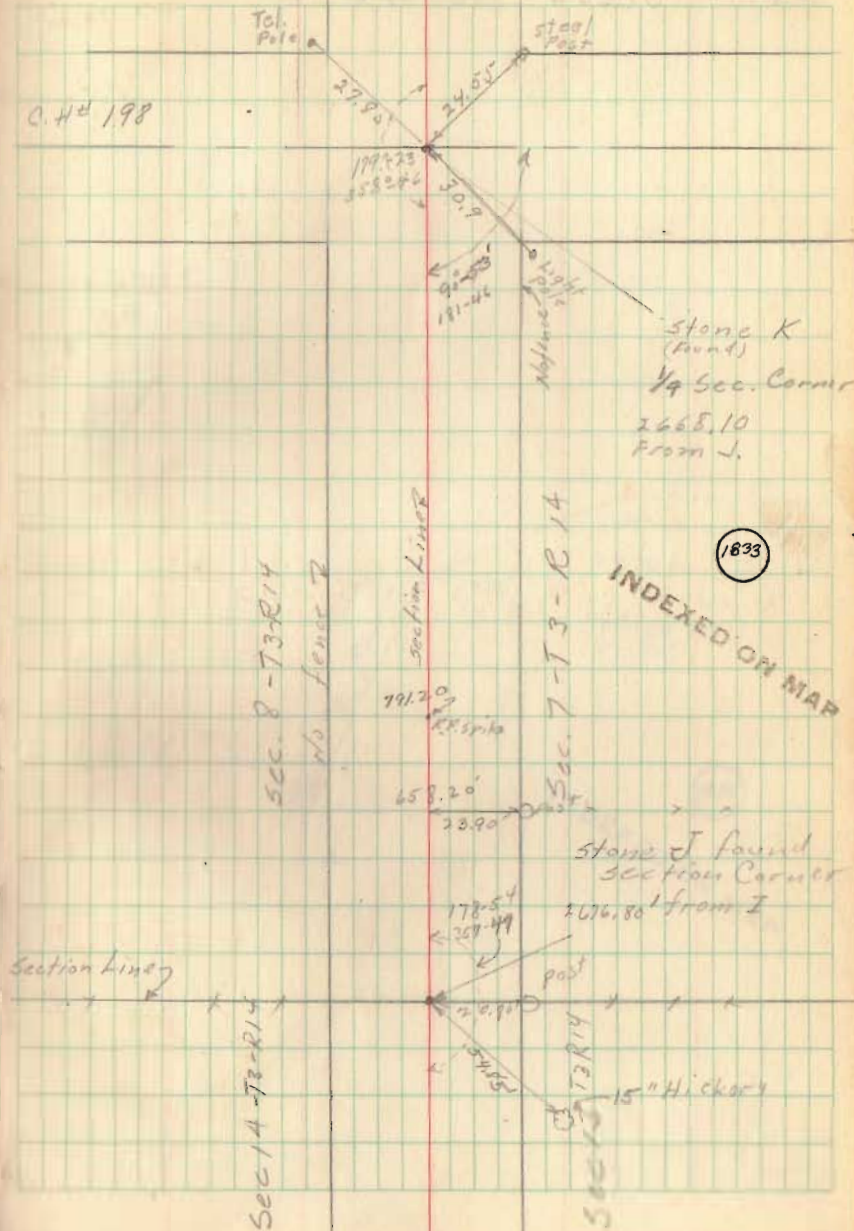 Tel.
Pole
Steel
Post
27.80'
24.55
C.H# 198
179-23
358-46
30.9
90-53'
181-46
Light
Pole
No fence
Stone K
(Found)
1/4 Sec. Corner
2668.10
From J.
1833
INDEXED ON MAP
Sec. 8 - T3-R14
No fence
Section Line
Sec. 7 - T3 - R14
791.20
R.R. Spike
658.20'
23.90
post
Stone J found
Section Corner
2676.80' from I
178-54
357-49
Section Line
post
20.80'
54.85'
15" Hickory
Sec 14 - T3-R14
T3R14